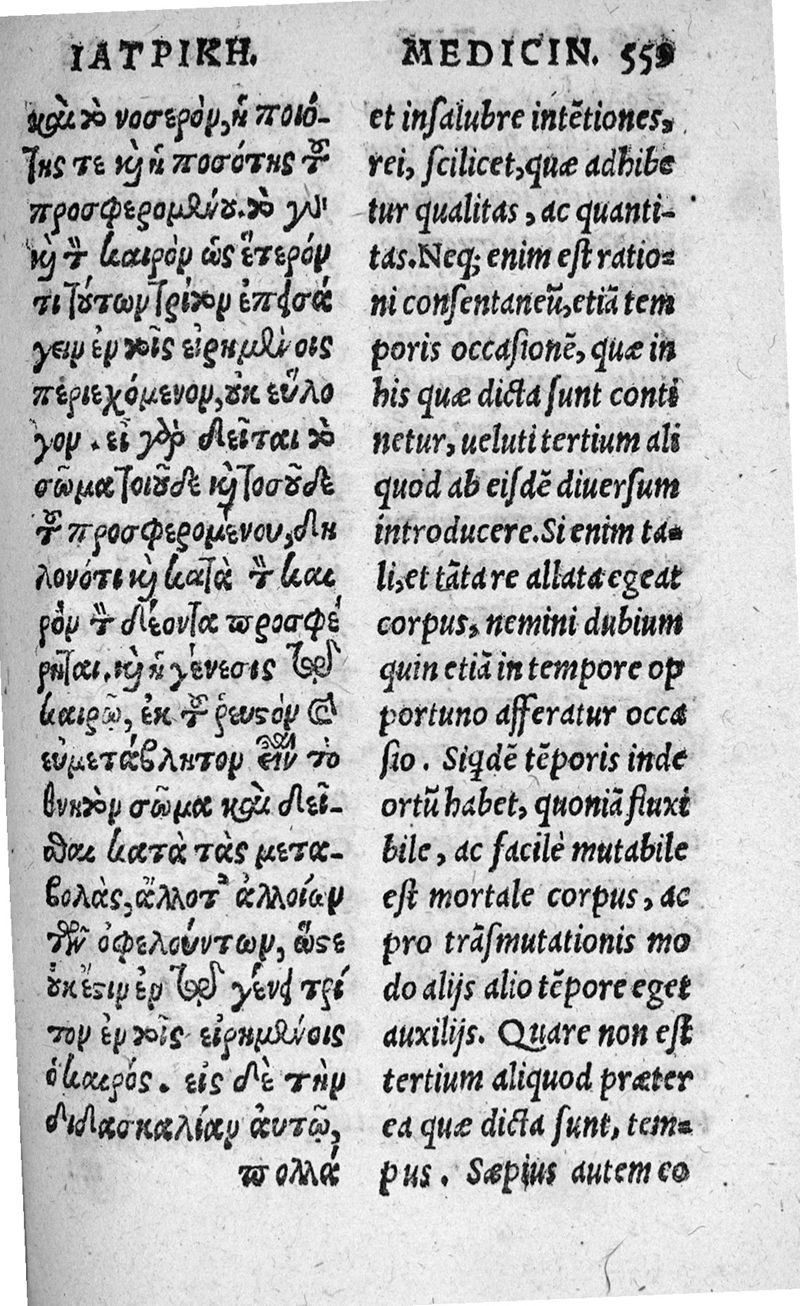 ΙΑΤΡΙΚΗ.
καὶ τὸ νοσερὸν, ἡ ποιό-
της τε καὶ ἡ ποσότης τοῦ
προσφερομένου. τὸ γὰρ
καὶ τὸν καιρὸν ὡς ἕτερόν
τι τούτων τρίτον ἐπεισά
γειν ἐν τοῖς εἰρημένοις
περιεχόμενον, οὐκ εὔλο
γον . εἰ γὰρ δεῖται τὸ
σῶμα τοιοῦδε καὶ τοσοῦδε
τοῦ προσφερομένου, δη
λονότι καὶ κατὰ τὸν και
ρὸν τὸν δέοντα προσφέ
ρηται. καὶ ἡ γένεσις τοῦ
καιροῦ, ἐκ τοῦ ῥευστὸν καὶ
εὐμετάβλητον εἶναι τὸ
θνητὸν σῶμα καὶ δεῖ-
σθαι κατὰ τὰς μετα-
βολὰς, ἄλλοτ' ἀλλοίων
τῶν ὀφελούντων, ὥστε
οὐκ ἔστιν ἐν τοῦ γένει τρί
τον ἐν τοῖς εἰρημένοις
ὁ καιρός . εἰς δὲ τὴν
διδασκαλίαν αὐτοῦ,
πολλά
MEDICIN. 559
et insalubre intẽtiones,
rei, scilicet, quæ adhibe
tur qualitas, ac quanti-
tas. Neq; enim est ratio-
ni consentaneũ, etiã tem
poris occasionẽ, quæ in
his quæ dicta sunt conti
netur, ueluti tertium ali
quod ab eisdẽ diuersum
introducere. Si enim ta-
li, et tãta re allata egeat
corpus, nemini dubium
quin etiã in tempore op
portuno afferatur occa
sio . Siqdẽ tẽporis inde
ortũ habet, quoniã fluxi
bile, ac facilè mutabile
est mortale corpus, ac
pro trãsmutationis mo
do alijs alio tẽpore eget
auxilijs. Quare non est
tertium aliquod præter
ea quæ dicta sunt, tem-
pus . Sæpius autem eo